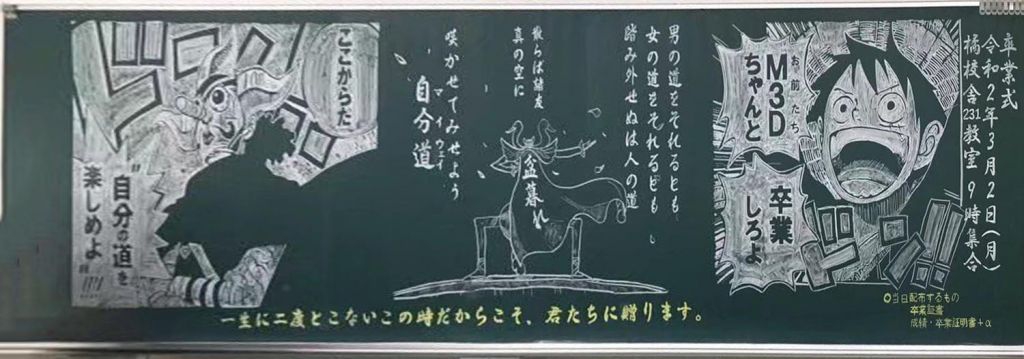 卒業式
令和2年3月2日(月)
橘校舎231教室 9時集合
お前たち
M3D
ちゃんと
卒業
しろよ
ドン!!
男の道をそれるとも
女の道をそれるとも
踏み外せぬは人の道
散らば諸友
真の空に
咲かせてみせよう
自分道
マイウェイ
盆暮れ
ここからだ
"自分の道を
楽しめよ"!!!
一生に二度とこないこの時だからこそ、君たちに贈ります。
○当日配布するもの
卒業証書
成績・卒業証明書+α